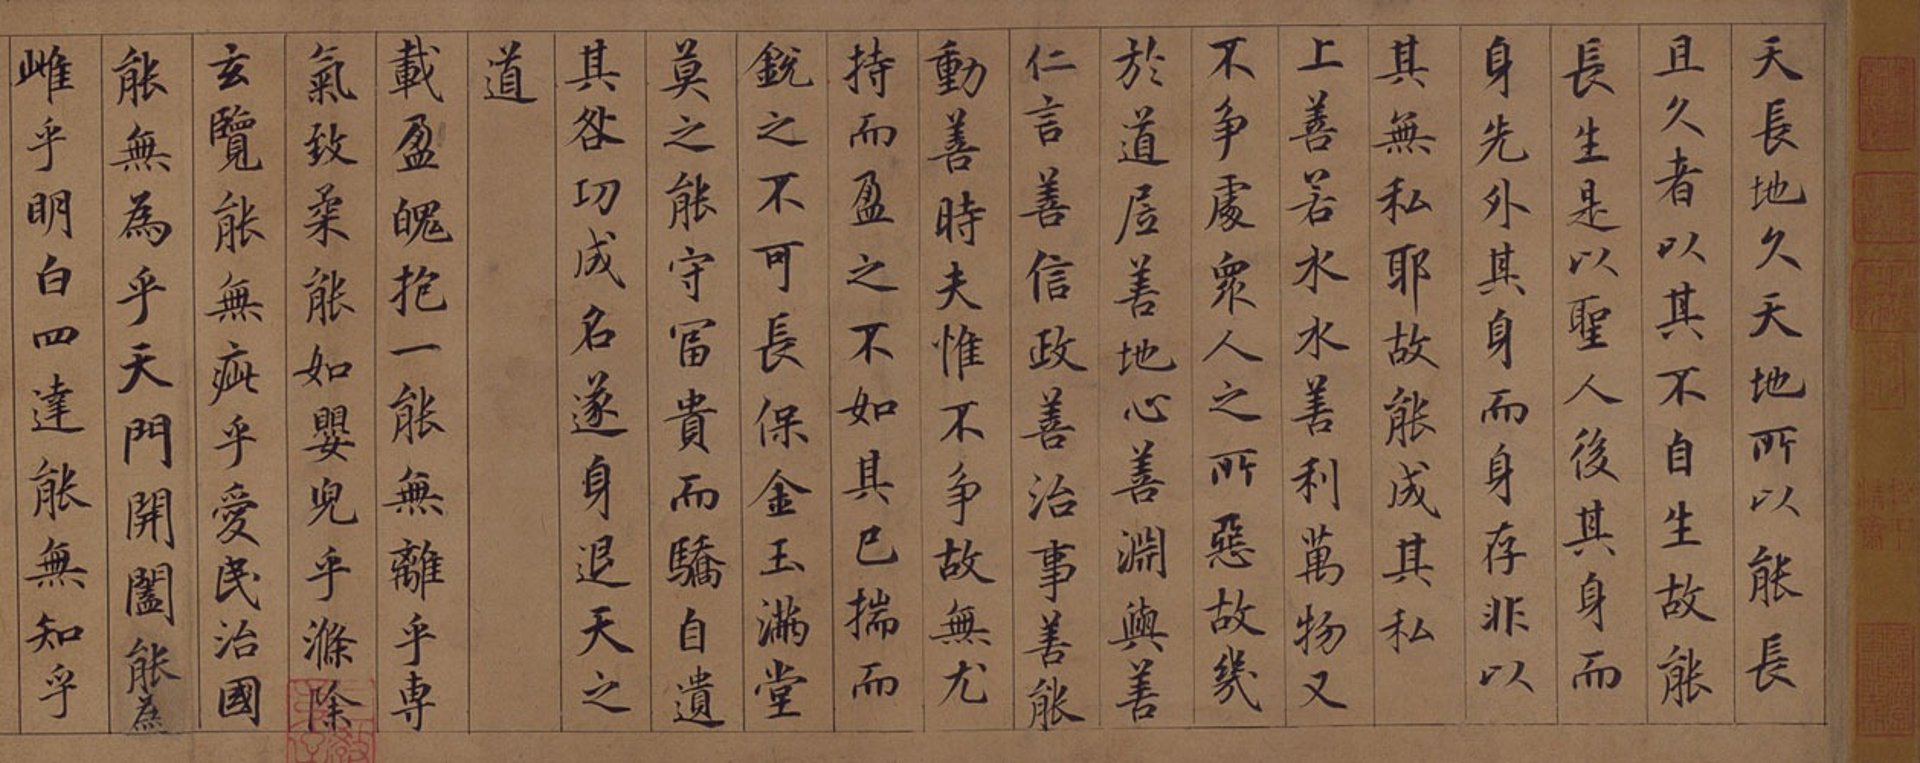 天長地久天地所以能長
且久者以其不自生故能
長生是以聖人後其身而
身先外其身而身存非以
其無私耶故能成其私
上善若水水善利萬物又
不争處衆人之所惡故幾
於道居善地心善淵與善
仁言善信政善治事善能
動善時夫惟不争故無尤
持而盈之不如其已揣而
銳之不可長保金玉滿堂
莫之能守冨貴而驕自遺
其咎功成名遂身退天之
道
載盈魄抱一能無離乎専
氣致柔能如嬰兒乎滌除
玄覽能無疵乎愛民治國
能無為乎天門開闔能為
雌乎明白四達能無知乎